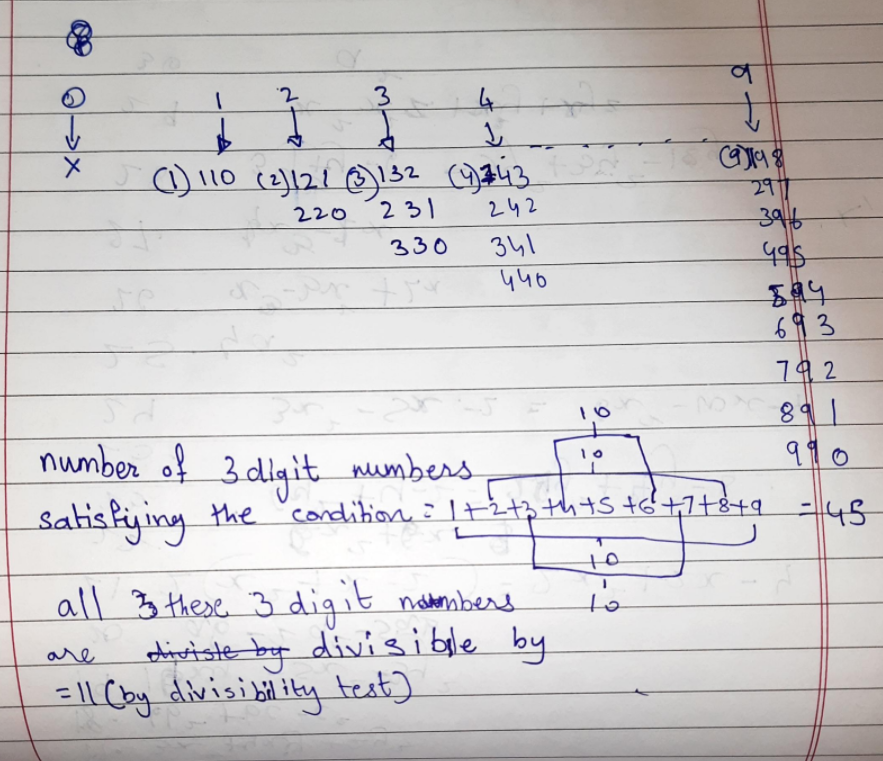 8
0 1 2 3 4 9
↓ ↓ ↓ ↓ ↓ - - . . . . . . ↓
x (1) 110 (2) 121 (3) 132 (4) 143 (9) 198
220 231 242 297
330 341 396
440 495
594
693
792
891
990
10
10
number of 3 digit numbers
satisfiying the condition = 1+2+3+4+5+6+7+8+9 = 45
10
10
all these 3 digit numbers
are diviste by divisible by
=11 (by divisibility test)